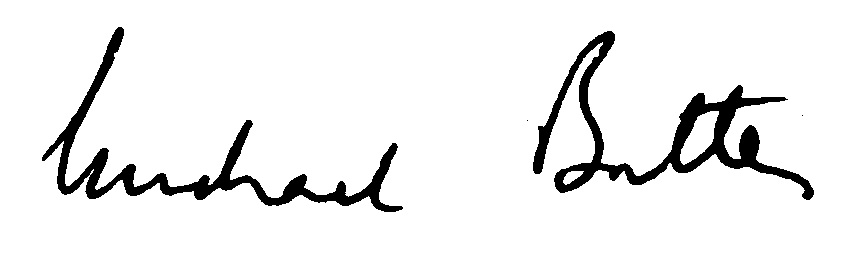 Michael Butter